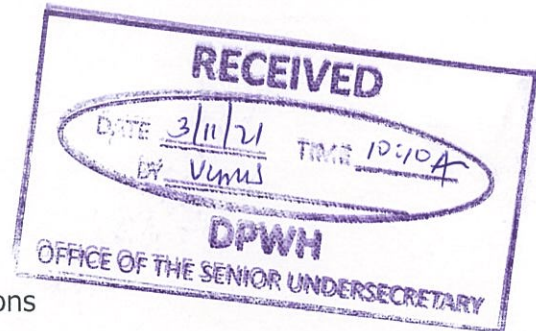 RECEIVED
DATE 3/11/21 TIME 10:10A
BY Venus
DPWH
OFFICE OF THE SENIOR UNDERSECRETARY
ons